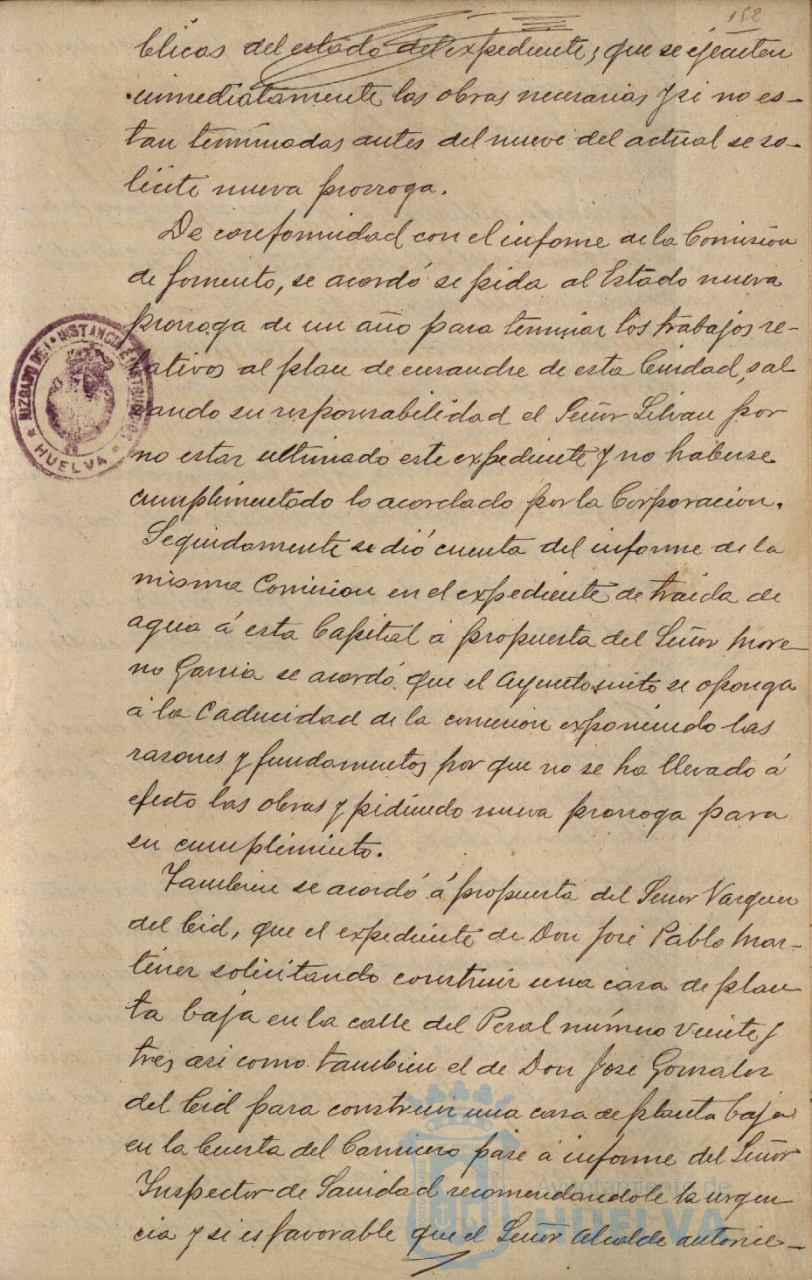 152
blicas del estado del expediente; que se ejecuten
inmediatamente las obras necesarias y si no es-
tan terminadas antes del nueve del actual se so-
licite nueva prorroga.
De conformidad con el informe de la Comisión
de fomento, se acordó se pida al Estado nueva
prorroga de un año para terminar los trabajos re-
lativos al plan de ensanche de esta Ciudad, sal
vando su responsabilidad el Señor Silvan por
no estar ultimado este expediente y no haberse
cumplimentado lo acordado por la Corporacion.
Seguidamente se dió cuenta del informe de la
misma Comision en el expediente de traida de
agua á esta Capital á propuesta del Señor More-
no Garcia se acordó que el Ayuntomito se oponga
á la Caducidad de la concesion exponiendo las
razones y fundamentos por que no se ha llevado á
efecto las obras y pidiendo nueva prorroga para
su cumplimiento.
Tambien se acordó á propuesta del Señor Vazquez
del Cid, que el expediente de Don José Pablo Mar-
tinez solicitando construir una casa de plan
ta baja en la calle del Peral número veinte y
tres asi como tambien el de Don José Gonzalez
del Cid para construir una casa de planta baja
en la Cuesta del Carnicero pase á informe del Señor
Inspector de Sanidad recomendandole la urgen
cia y si es favorable que el Señor Alcalde autorice-
JUZGADO DE 1ª INSTANCIA E INSTRUCCION
* HUELVA *
Ayuntamiento de
HUELVA